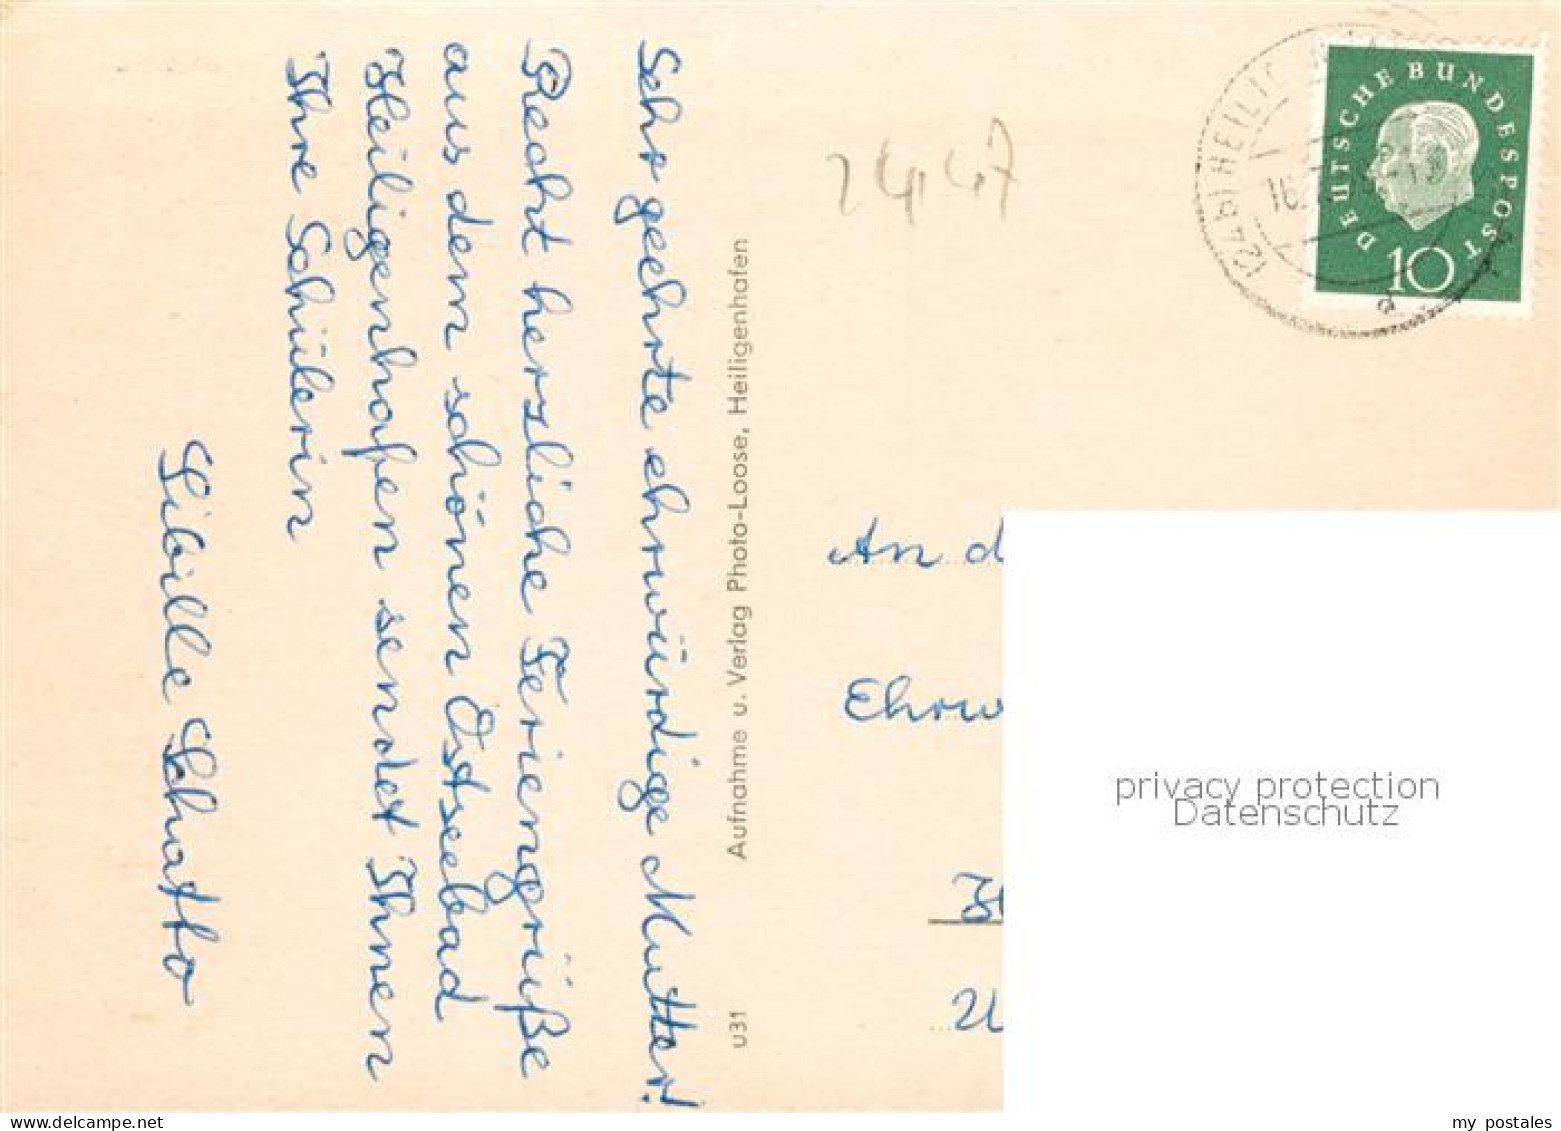 Sehr geehrte ehrwürdige Mutter!
Recht herzliche Feriengrüße
aus dem schönen Ostseebad
Heiligenhafen sendet Ihnen
Ihre Schülerin
Sibille Schatto
Aufnahme u. Verlag Photo-Loose, Heiligenhafen
u31
2447
DEUTSCHE BUNDESPOST
10
(24b) HEILIG
16.
a
An d
Ehrw
privacy protection
Datenschutz
my postales